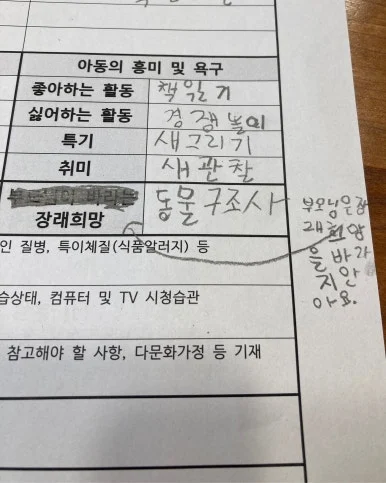 아동의 흥미 및 욕구
좋아하는 활동 책 읽기
싫어하는 활동 경쟁놀이
특기 새그리기
취미 새관찰
장래희망 동물구조사
부모님은 장
래희망
을 바라
지 안
아요.
인 질병, 특이체질(식품알러지) 등
습상태, 컴퓨터 및 TV 시청습관
참고해야 할 사항, 다문화가정 등 기재